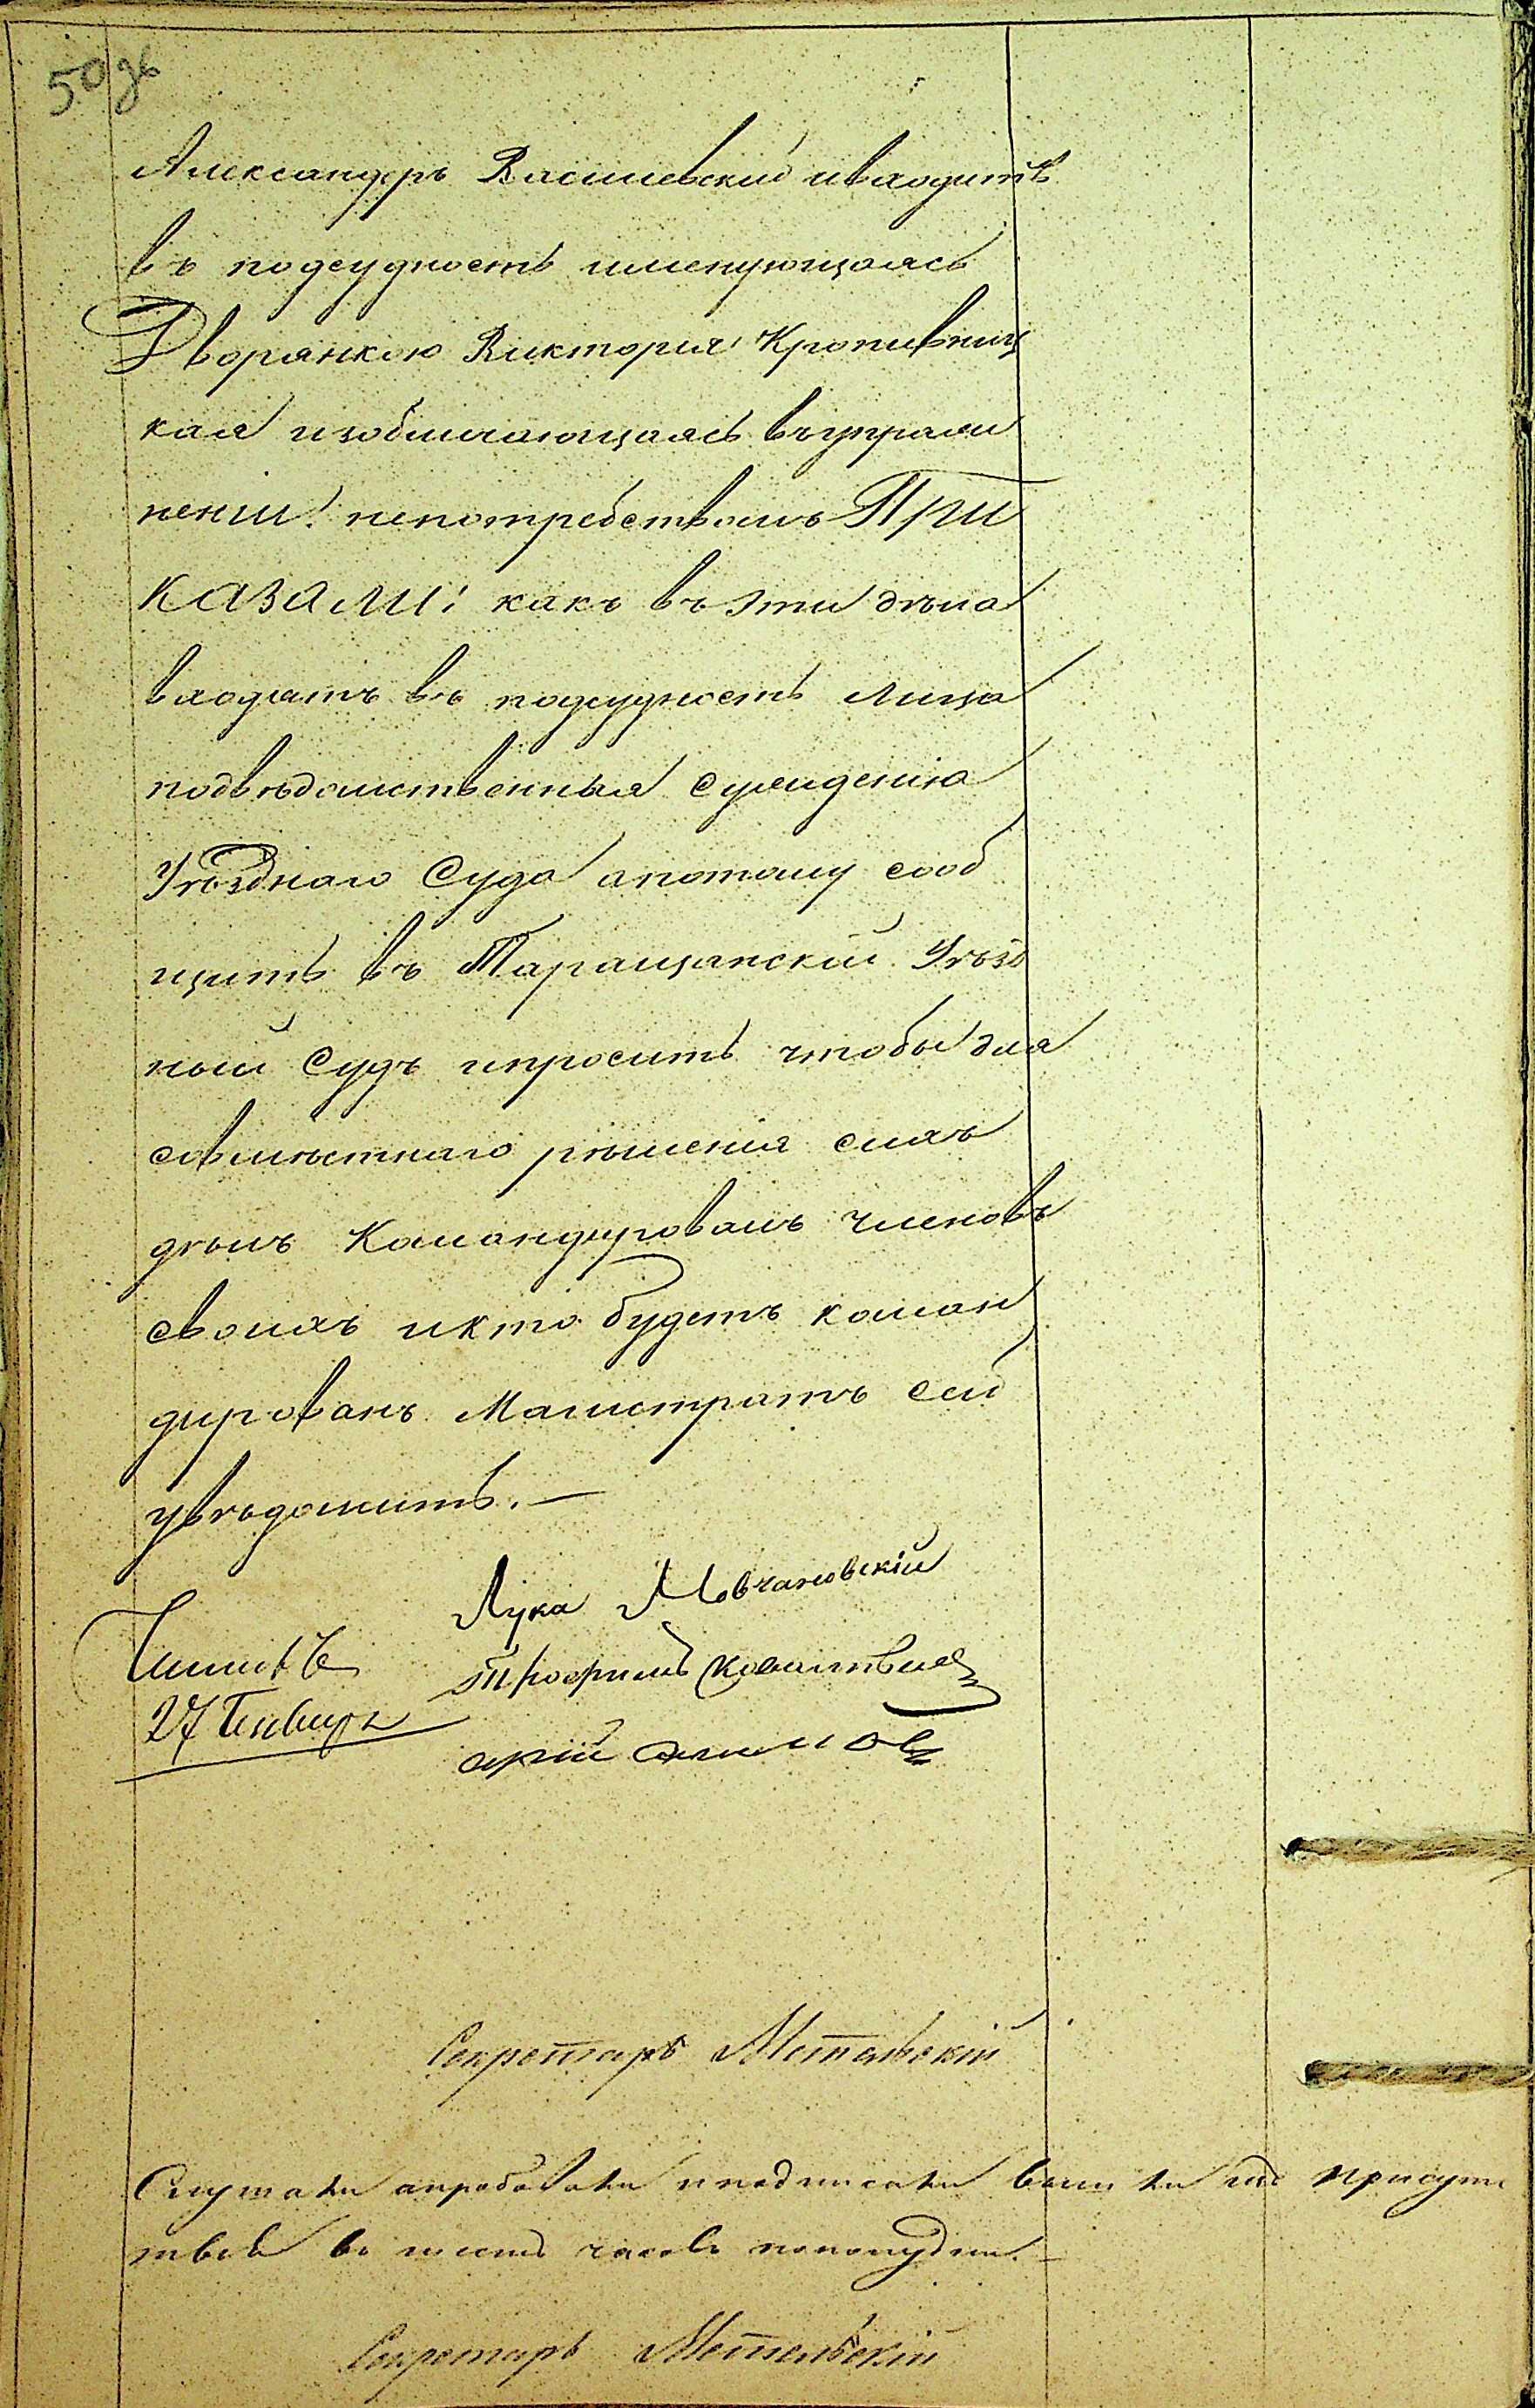 50 об
Александеръ Василевский ивходитъ
въ подсудность именующаясь
Дворянкою Виктория Кропивниц
кая изобличающаясь въупраж
нении непотребствомъ При
казали: какъ въ эти дѣла
входятъ въ подсудность лица
подвѣдомственныя сужденію
Уѣзднаго Суда апотому сооб
щить въ Таращанскій Уѣзд
ный Судъ ипросить чтобы для
совмѣстнаго рѣшенія симъ
дѣлъ Командировалъ членовъ
своихъ икто будетъ коман
дированъ Магистратъ сей
увѣдомить.—
Лука Мовчановскій
27 Генваря
Трофимъ
Секретарь Метельскій
Слушали апробовали иподписали вышли изъ присутс
твія во шесть часовъ пополудни.—
Секретарь Метельскій